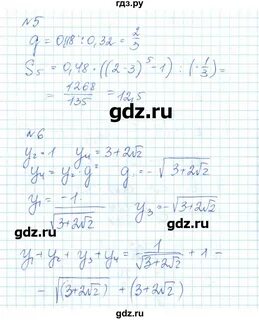 гдз.ру
№5
q = 0,48 : 0,32 = 2/3
S₅ = 0,48 · ((2-3)⁵ - 1) : (-1/3) =
= 1268/135 = 12,5
№6
y₂ = 1 y₄ = 3+2√2
y₄ = y₂ · g² g = -√(3+2√2)
y₁ = -1/√(3+2√2) y₃ = -√(3+2√2)
y₁ + y₂ + y₃ + y₄ = -1/√(3+2√2) + 1 -
- √(3+2√2) + (3+2√2)
гдз.ру